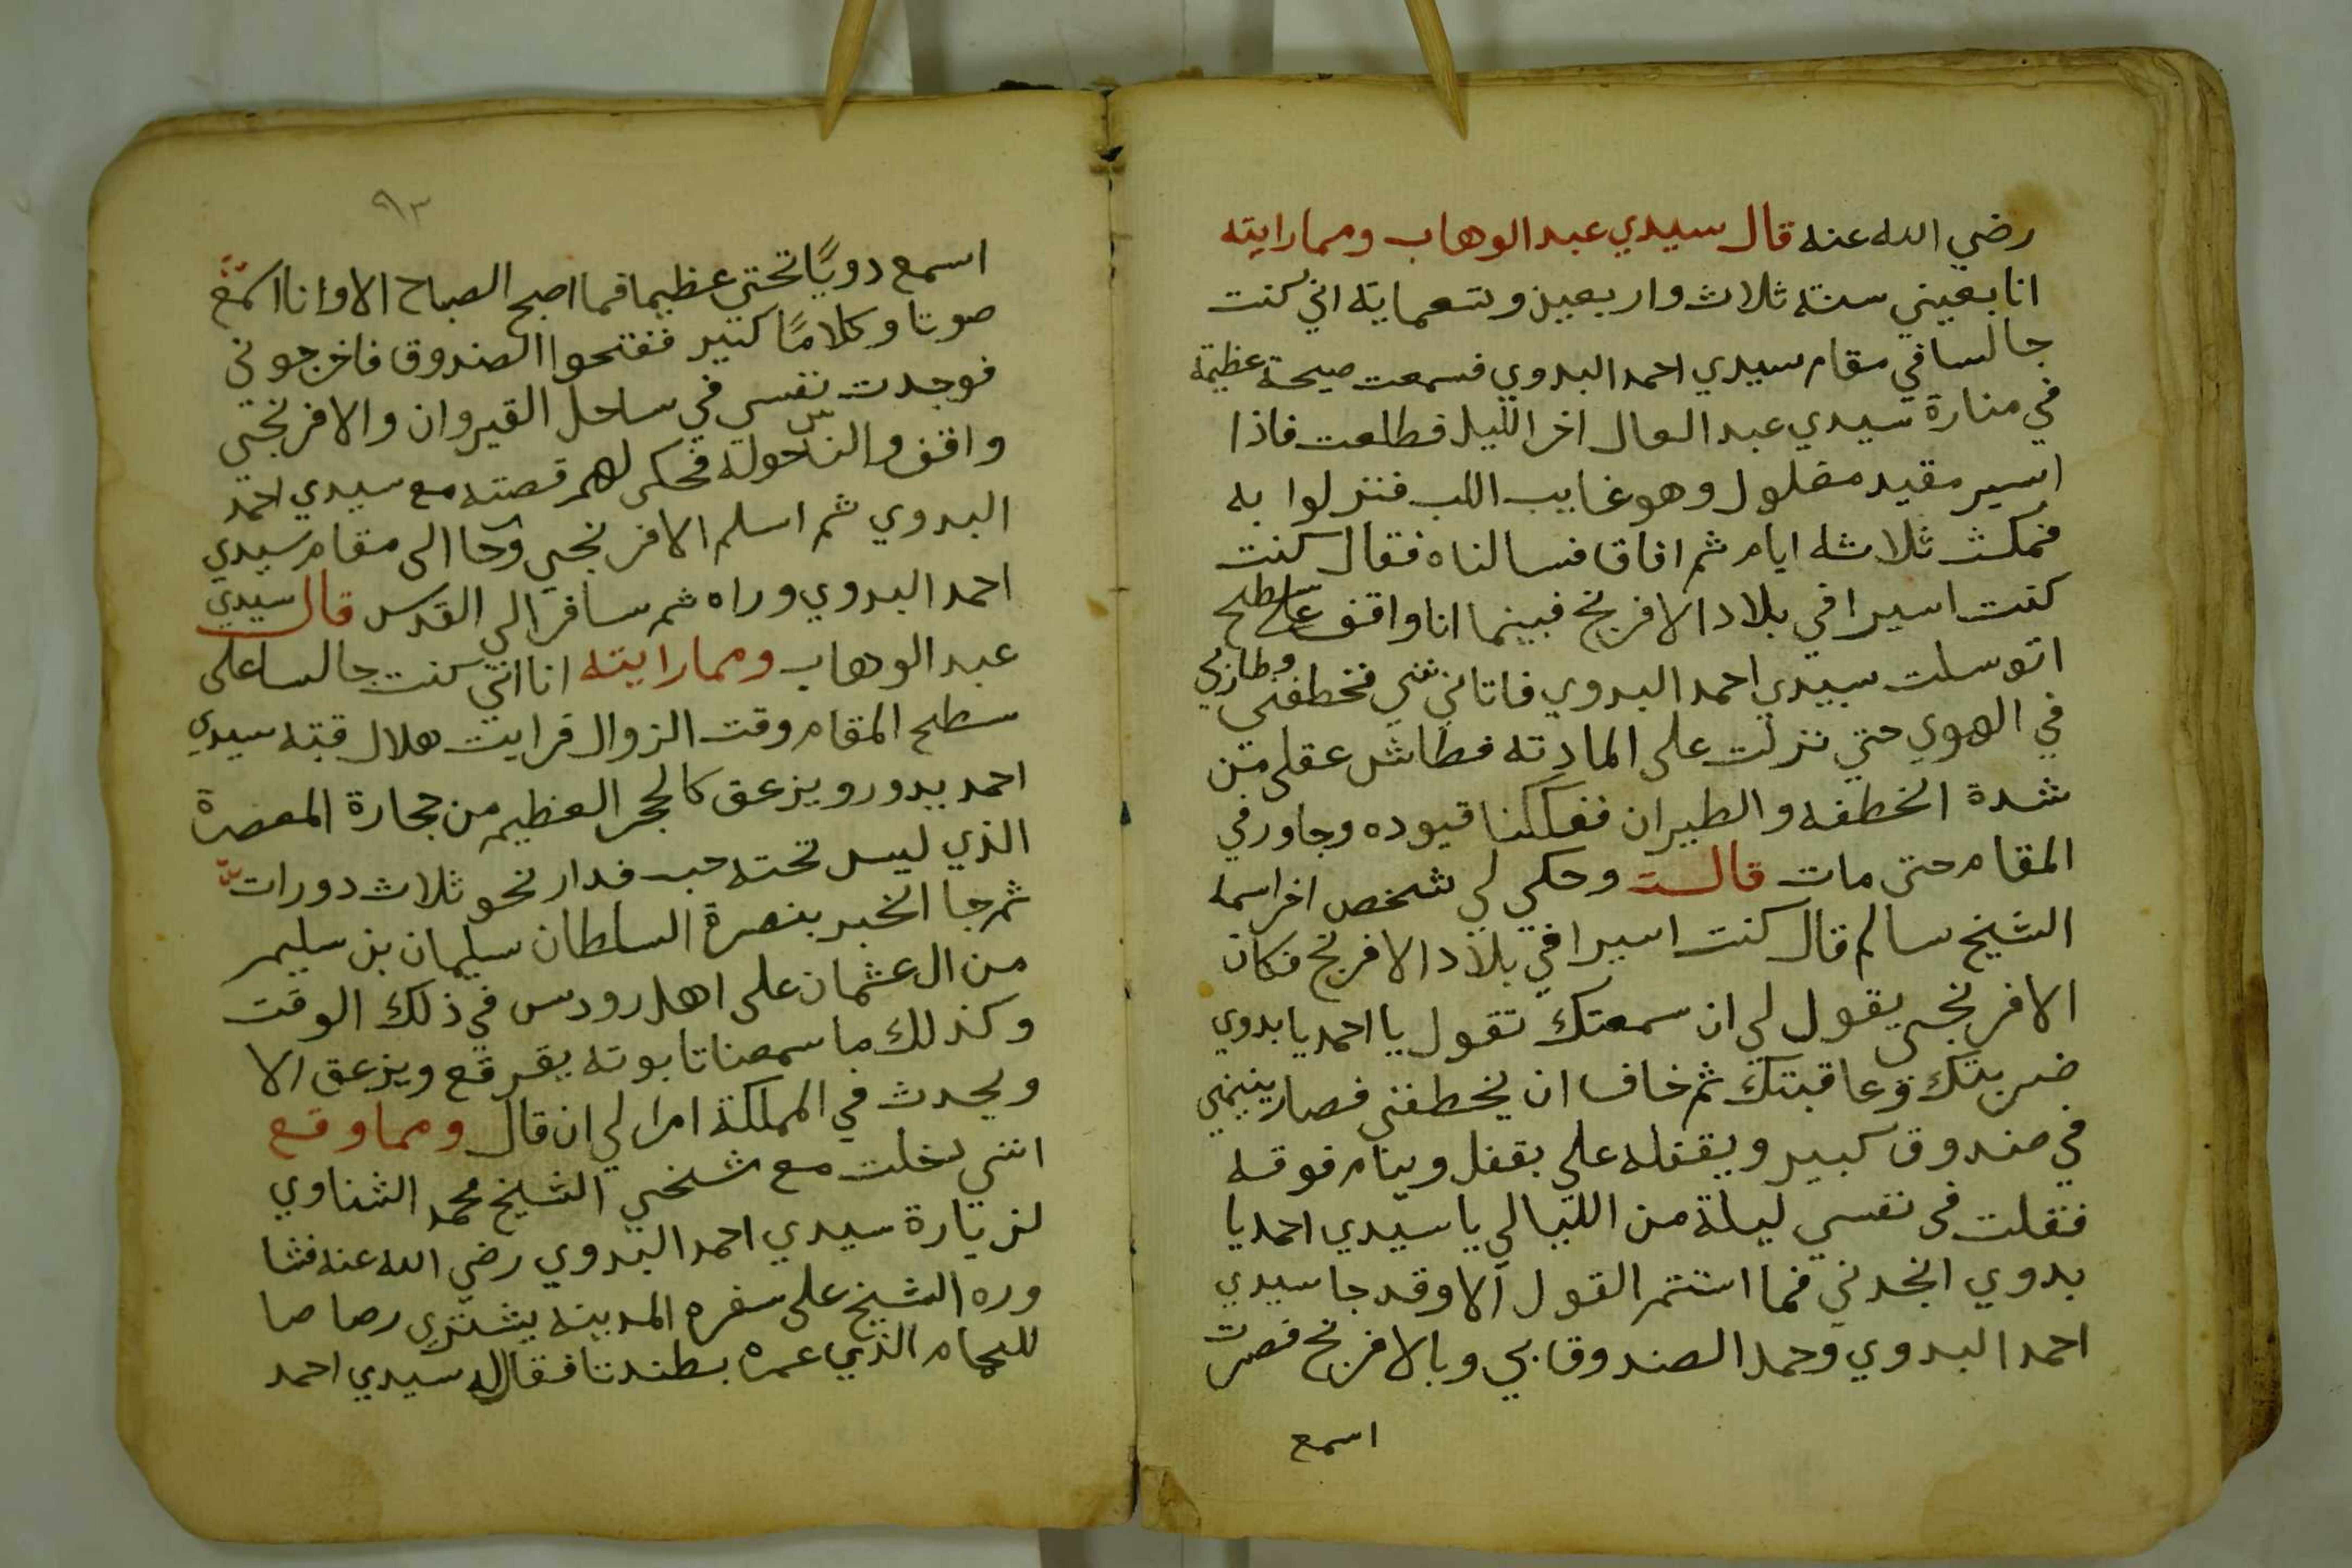 رضي الله عنه قال سيدي عبد الوهاب ومما رايته
انا بعيني سنة ثلاث واربعين وتسعماية اني كنت
جالسا في مقام سيدي احمد البدوي فسمعت صيحة عظيمة
في منارة سيدي عبد العال اخر الليل فطلعت فاذا
اسير مقيد مغلول وهو غايب اللب فنزلوا به
فمكث ثلاثه ايام ثم افاق فسالناه فقال كنت
كنت اسيرا في بلاد الافرنج فبينما انا واقف على سطح
اتوسلت سيدي احمد البدوي فاتاني فخطفني وطار بي
في الهوي حتي نزلت على المادنه فطاش عقلي من
شدة الخطفه والطيران ففككنا قيوده وجاور في
المقام حتى مات قالت وحكى لي شخص اخر اسمه
الشيخ سالم قال كنت اسيرا في بلاد الافرنج فكان
الافرنجي يقول لي ان سمعتك تقول يا احمد يا بدوي
ضربتك وعاقبتك ثم خاف ان يخطفني فصار ينيمني
في صندوق كبير ويقفله على بقفل وينام فوقه
فقلت في نفسي ليلة من الليالي يا سيدي احمد يا
بدوي انجدني فما استتمر القول الا وقد جا سيدي
احمد البدوي وحمد الصندوق بي وبالافرنج فصرت
اسمع
٩٣
اسمع دويًا تحتي عظيما فما اصبح الصباح الا وانا اسمع
صوتا وكلامًا كتير ففتحوا الصندوق فاخرجوني
فوجدت نفسي في ساحل القيروان والافرنجي
واقف والناس حوله فحكى لهم قصته مع سيدي احمد
البدوي ثم اسلم الافرنجي وجا الى مقام سيدي
احمد البدوي وراه ثم سافر الي القدس قال سيدي
عبد الوهاب ومما رايته انا اني كنت جالسا على
سطح المقام وقت الزوال فرايت هلال قبة سيدي
احمد يدور ويزعق كالحجر العظيم من حجارة المعصرة
الذي ليس تحته حب فدار نحو ثلاث دورات
ثم جا الخبر بنصرة السلطان سليمان بن سليم
من ال عثمان على اهل رودس في ذلك الوقت
وكذلك ما سمعنا تابوته يقرقع ويزعق الا
ويحدث في المملكة امرا لي ان قال ومما وقع
انني دخلت مع شيخي الشيخ محمد الشناوي
لزيارة سيدي احمد البدوي رضي الله عنه فشا
وره الشيخ على سفره المدينه يشتري رصاصا
للحمام الذي عمره بطندتا فقال له سيدي احمد